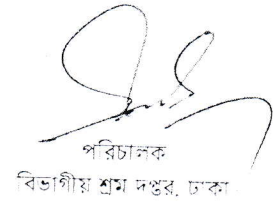 পরিচালক
বিভাগীয় শ্রম দপ্তর, ঢাকা